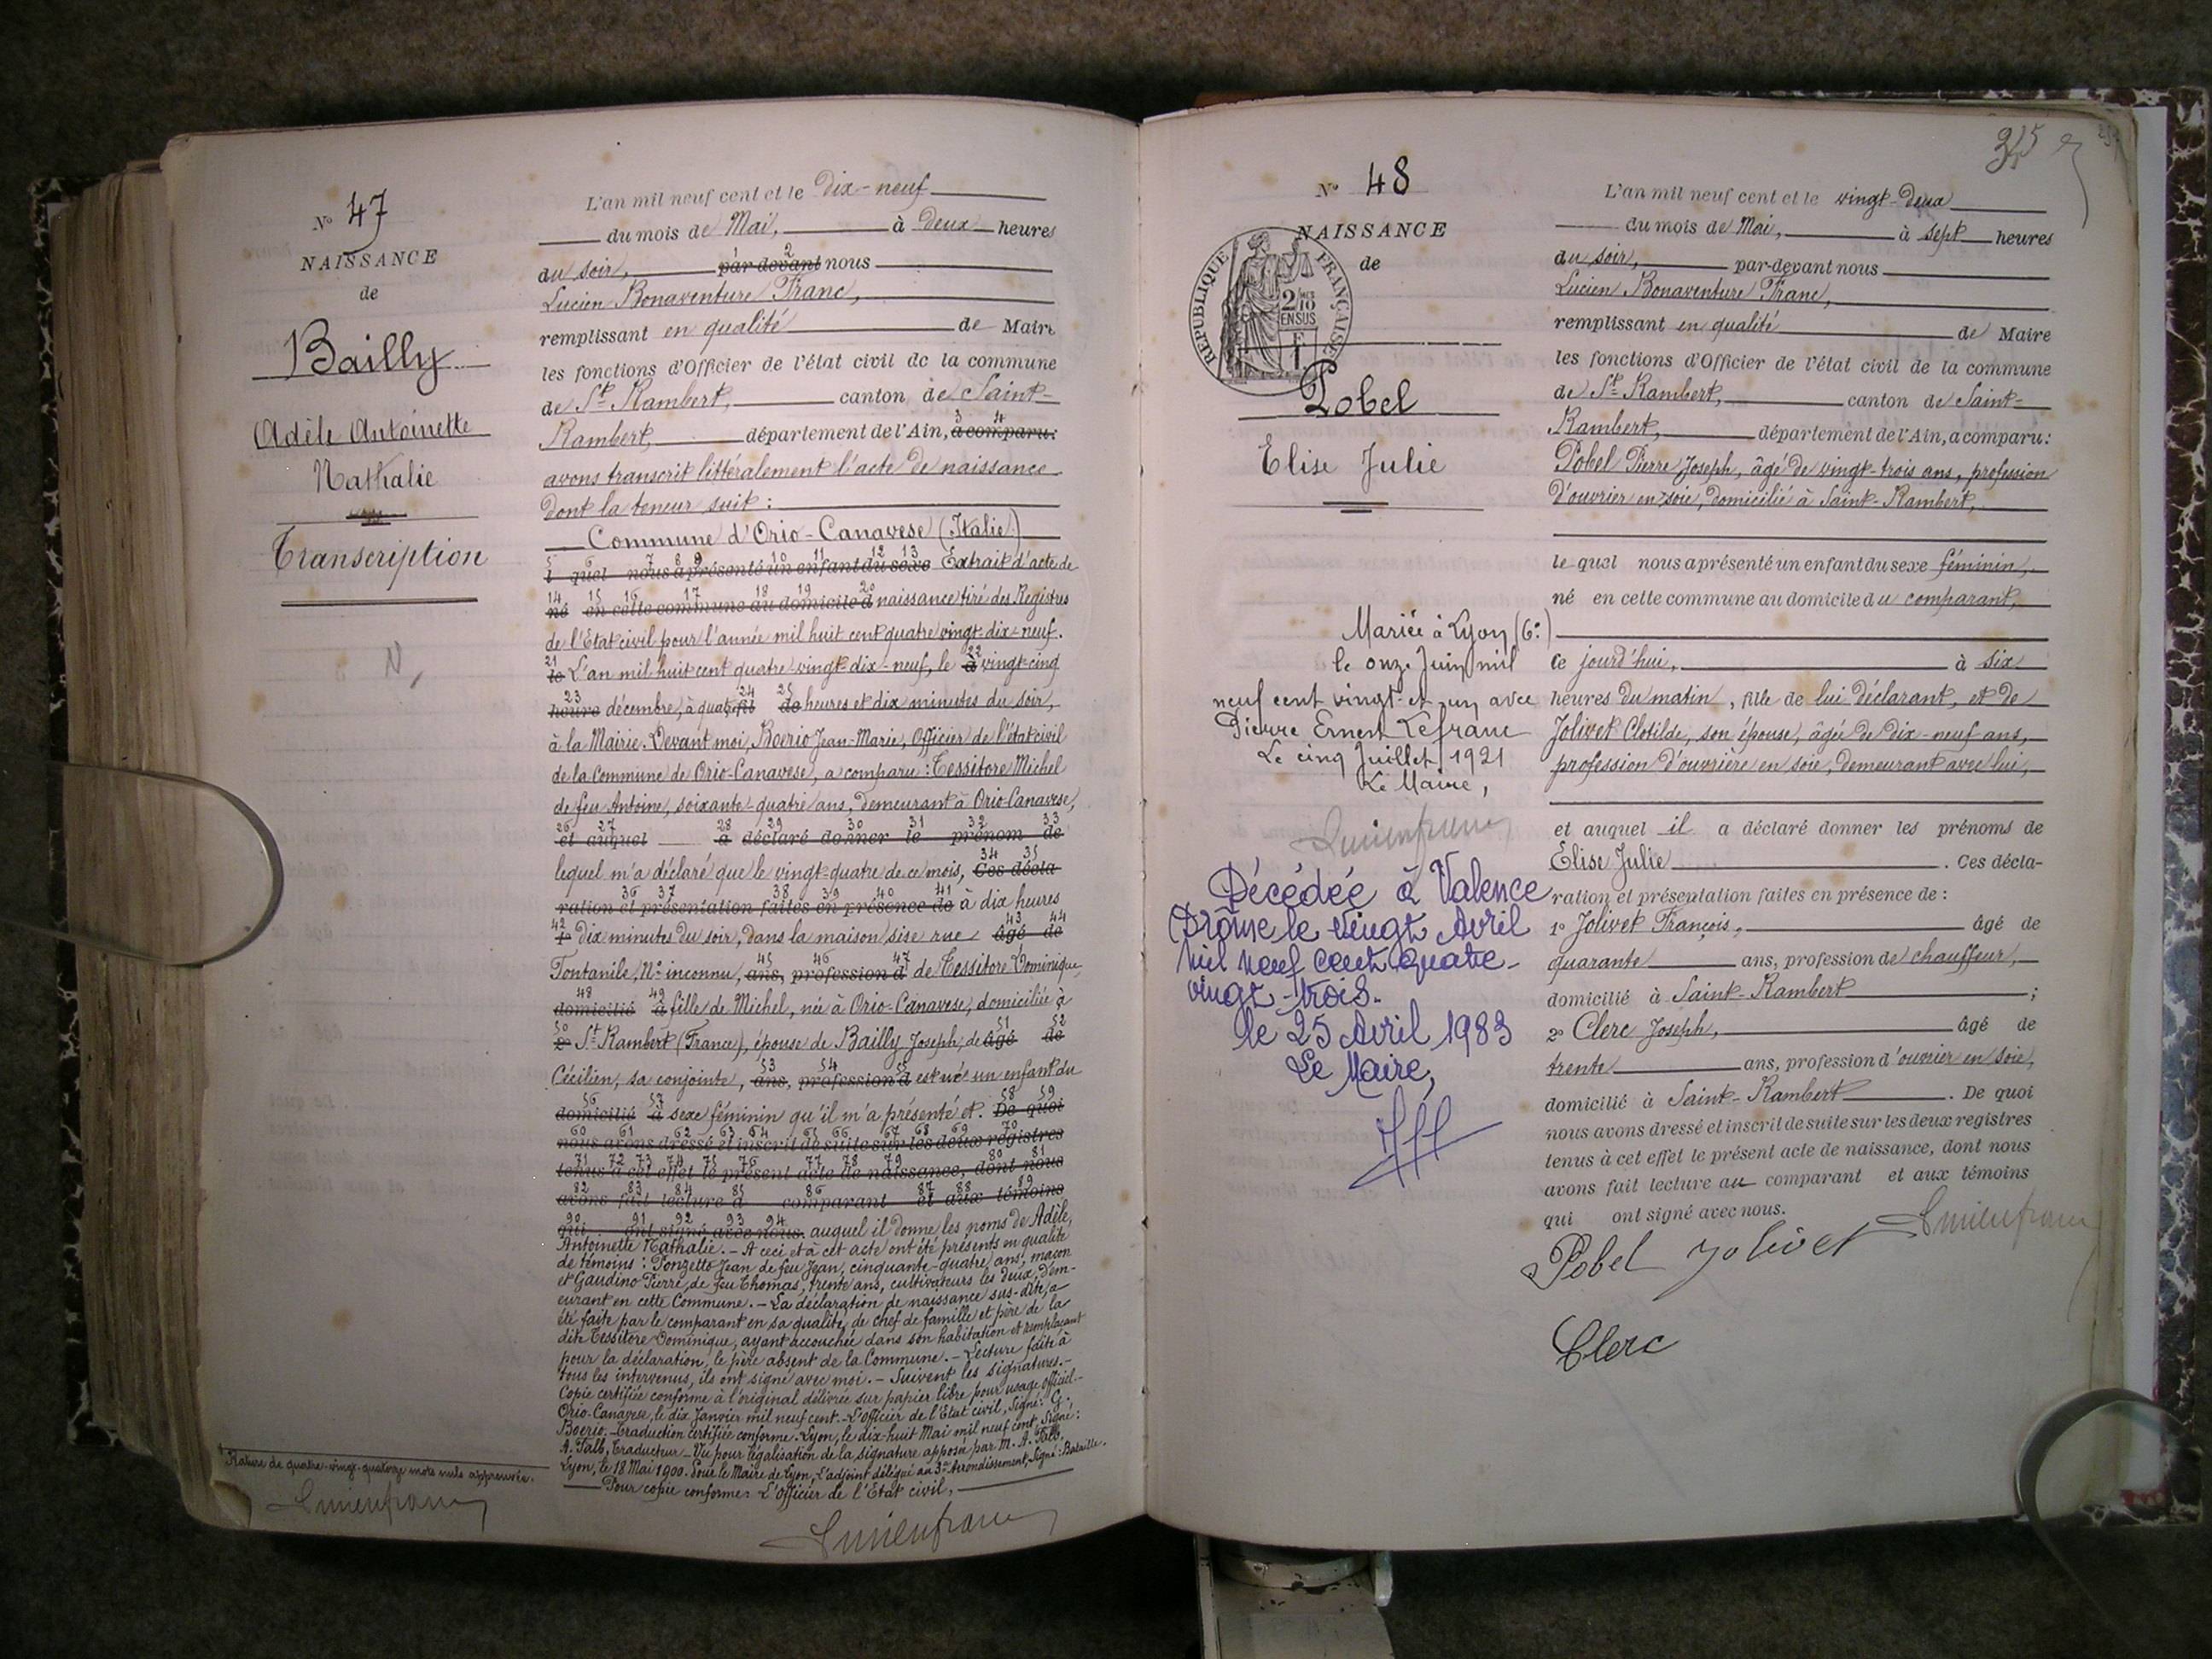 N° 47
NAISSANCE
de
Bailly
Adèle Antoinette
Nathalie
Transcription
N,
Rature de quatre-vingt-quatorze mots nuls approuvée.
Lucien franc
L'an mil neuf cent et le dix-neuf
du mois de Mai, à deux heures
du soir, par devant nous
Lucien Bonaventure Franc,
remplissant en qualité de Maire
les fonctions d'Officier de l'état civil de la commune
de St Rambert, canton de Saint-
Rambert, département de l'Ain, a comparu:
avons transcrit littéralement l'acte de naissance
dont la teneur suit :
Commune d'Orio-Canavese (Italie)
5 6 7 8 9 10 11 12 13
l quel nous a présenté un enfant du sexe Extrait d'acte de
14 15 16 17 18 19 20
né en cette commune au domicile d naissance tiré des Registres
de l'Etat civil pour l'année mil huit cent quatre vingt-dix-neuf.
21 22
le L'an mil huit cent quatre vingt-dix-neuf, le à vingt-cinq
23 24 25
heure décembre, à quatre fil de heures et dix minutes du soir,
à la Mairie. Devant moi, Boerio Jean-Marie, Officier de l'état civil
de la Commune de Orio-Canavese, a comparu : Tessitore Michel
de feu Antoine, soixante-quatre ans, demeurant à Orio-Canavese,
26 27 28 29 30 31 32 33
et auquel a déclaré donner le prénom de
34 35
lequel m'a déclaré que le vingt-quatre de ce mois, Ces décla
36 37 38 39 40 41
ration et présentation faites en présence de à dix heures
42 43 44
1° dix minutes du soir, dans la maison sise rue âgé de
45 46 47
Fontanile, N° inconnu, ans, profession d de Tessitore Dominique,
48 49
domicilié à fille de Michel, née à Orio-Canavese, domiciliée à
50 51 52
2° St Rambert (France), épouse de Bailly Joseph, de âgé de
53 54 55
Cécilien, sa conjointe, ans, profession d est né un enfant du
56 57 58 59
domicilié à sexe féminin qu'il m'a présenté et. De quoi
60 61 62 63 64 65 66 67 68 69 70
nous avons dressé et inscrit de suite sur les deux registres
71 72 73 74 75 76 77 78 79 80 81
tenus à cet effet le présent acte de naissance, dont nous
82 83 84 85 86 87 88 89
avons fait lecture a comparant et aux témoins
90 91 92 93 94
qui ont signé avec nous. auquel il donne les noms de Adèle,
Antoinette Nathalie. – A ceci et à cet acte ont été présents en qualité
de témoins : Ponzetto Jean de feu Jean, cinquante-quatre ans, maçon
et Gaudino Pierre, de feu Thomas, trente ans, cultivateurs les deux, dem-
eurant en cette Commune. – La déclaration de naissance sus-dite, a
été faite par le comparant en sa qualité, de chef de famille et père de la
dite Tessitore Dominique, ayant accouchée dans son habitation et remplaçant
pour la déclaration, le père absent de la Commune. – Lecture faite à
tous les intervenus, ils ont signé avec moi. – Suivent les signatures. –
Copie certifiée conforme à l'original délivrée sur papier libre pour usage officiel –
Orio-Canavese, le dix Janvier mil neuf cent. – L'officier de l'Etat civil, Signé : G.
Boerio. – Traduction certifiée conforme. Lyon, le dix-huit Mai mil neuf cent, Signé :
A. Falb, traducteur – Vu pour légalisation de la signature apposée par M. A. Falb.
Lyon, le 18 Mai 1900. Pour le Maire de Lyon, L'adjoint délégué au 3e Arrondissement, Signé : Bataille.
Pour copie conforme : L'Officier de l'Etat civil,
Lucien franc
N° 48
NAISSANCE
de
REPUBLIQUE FRANÇAISE
2/10 EN SUS
Pobel
Elise Julie
Mariée à Lyon (6e)
le onze Juin mil
neuf cent vingt-et-un avec
Pierre Ernest Lefranc
Le cinq Juillet 1921
Le Maire,
Lucien franc
Décédée à Valence
(Drôme) le vingt Avril
mil neuf cent quatre-
vingt-trois.
le 25 Avril 1983
Le Maire,
L'an mil neuf cent et le vingt-deux
du mois de Mai, à sept heures
du soir, par-devant nous
Lucien Bonaventure Franc,
remplissant en qualité de Maire
les fonctions d'Officier de l'état civil de la commune
de St Rambert, canton de Saint-
Rambert, département de l'Ain, a comparu :
Pobel Pierre Joseph, âgé de vingt-trois ans, profession
d'ouvrier en soie, domicilié à Saint-Rambert,
le quel nous a présenté un enfant du sexe féminin,
né en cette commune au domicile du comparant,
ce jourd'hui, à six
heures du matin, fille de lui déclarant, et de
Jolivet Clotilde, son épouse, âgée de dix-neuf ans,
profession d'ouvrière en soie, demeurant avec lui,
et auquel il a déclaré donner les prénoms de
Elise Julie. Ces décla-
ration et présentation faites en présence de :
1° Jolivet François, âgé de
quarante ans, profession de chauffeur,
domicilié à Saint-Rambert ;
2° Clerc Joseph, âgé de
trente ans, profession d'ouvrier en soie,
domicilié à Saint-Rambert. De quoi
nous avons dressé et inscrit de suite sur les deux registres
tenus à cet effet le présent acte de naissance, dont nous
avons fait lecture au comparant et aux témoins
qui ont signé avec nous.
Pobel Jolivet Lucien franc
Clerc